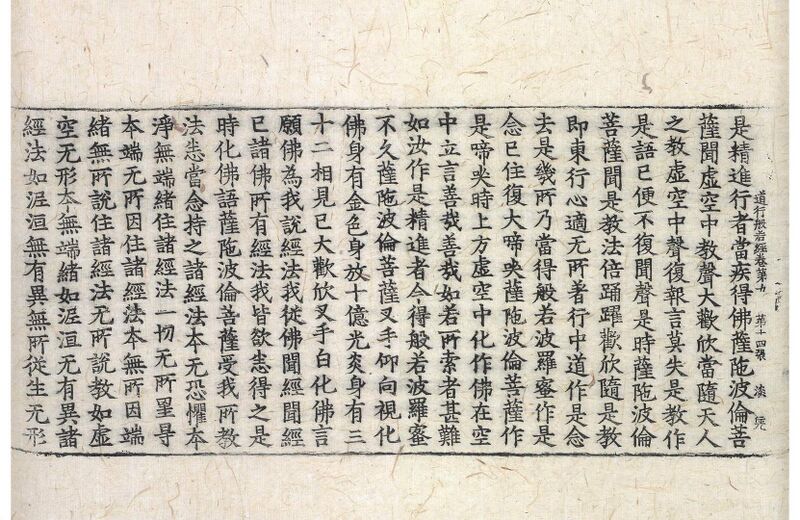 道行般若經卷第九 第十四張 淡
是精進行者當疾得佛薩陁波倫菩
薩聞虛空中教聲大歡欣當隨天人
之教虛空中聲復報言莫失是教作
是語已便不復聞聲是時薩陁波倫
菩薩聞是教法倍踊躍歡欣隨是教
即東行心適无所著行中道作是念
去是幾所乃當得般若波羅蜜作是
念已住復大啼哭薩陁波倫菩薩作
是啼哭時上方虛空中化作佛在空
中立言善哉善哉如若所索者甚難
如汝作是精進者今得般若波羅蜜
不久薩陁波倫菩薩叉手仰向視化
佛身有金色身放十億光炎身有三
十二相見已大歡欣叉手白化佛言
願佛為我說經法我從佛聞經聞經
已諸佛所有經法我皆欲悉得之是
時化佛語薩陁波倫菩薩受我所教
法悉當念持之諸經法本无恐懼本
淨無端緒住諸經法一切无所罣㝵
本端无所因住諸經法本無所因端
緒無所說住諸經法无所說教如虛
空无形本無端緒如泥洹无有異諸
經法如泥洹無有異無所從生无形